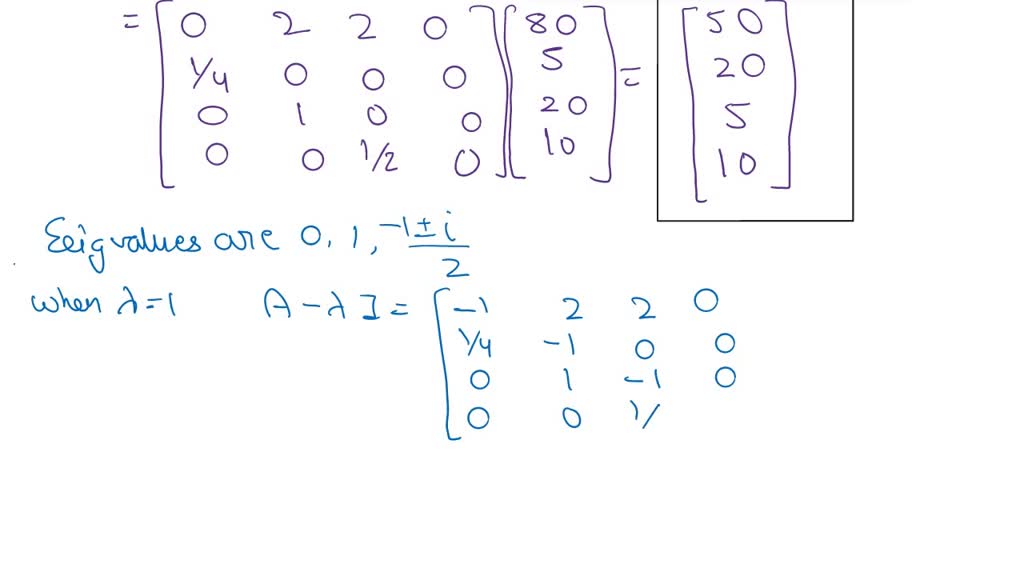 = [ 0 2 2 0 ] [ 80 ] = [ 50 ]
1/4 0 0 0 5 20
0 1 0 0 20 5
0 0 1/2 0 10 10
Eeigvalues are 0, 1, -1 ± i / 2
when λ=1 A - λ I = [ -1 2 2 0
1/4 -1 0 0
0 1 -1 0
0 0 1/